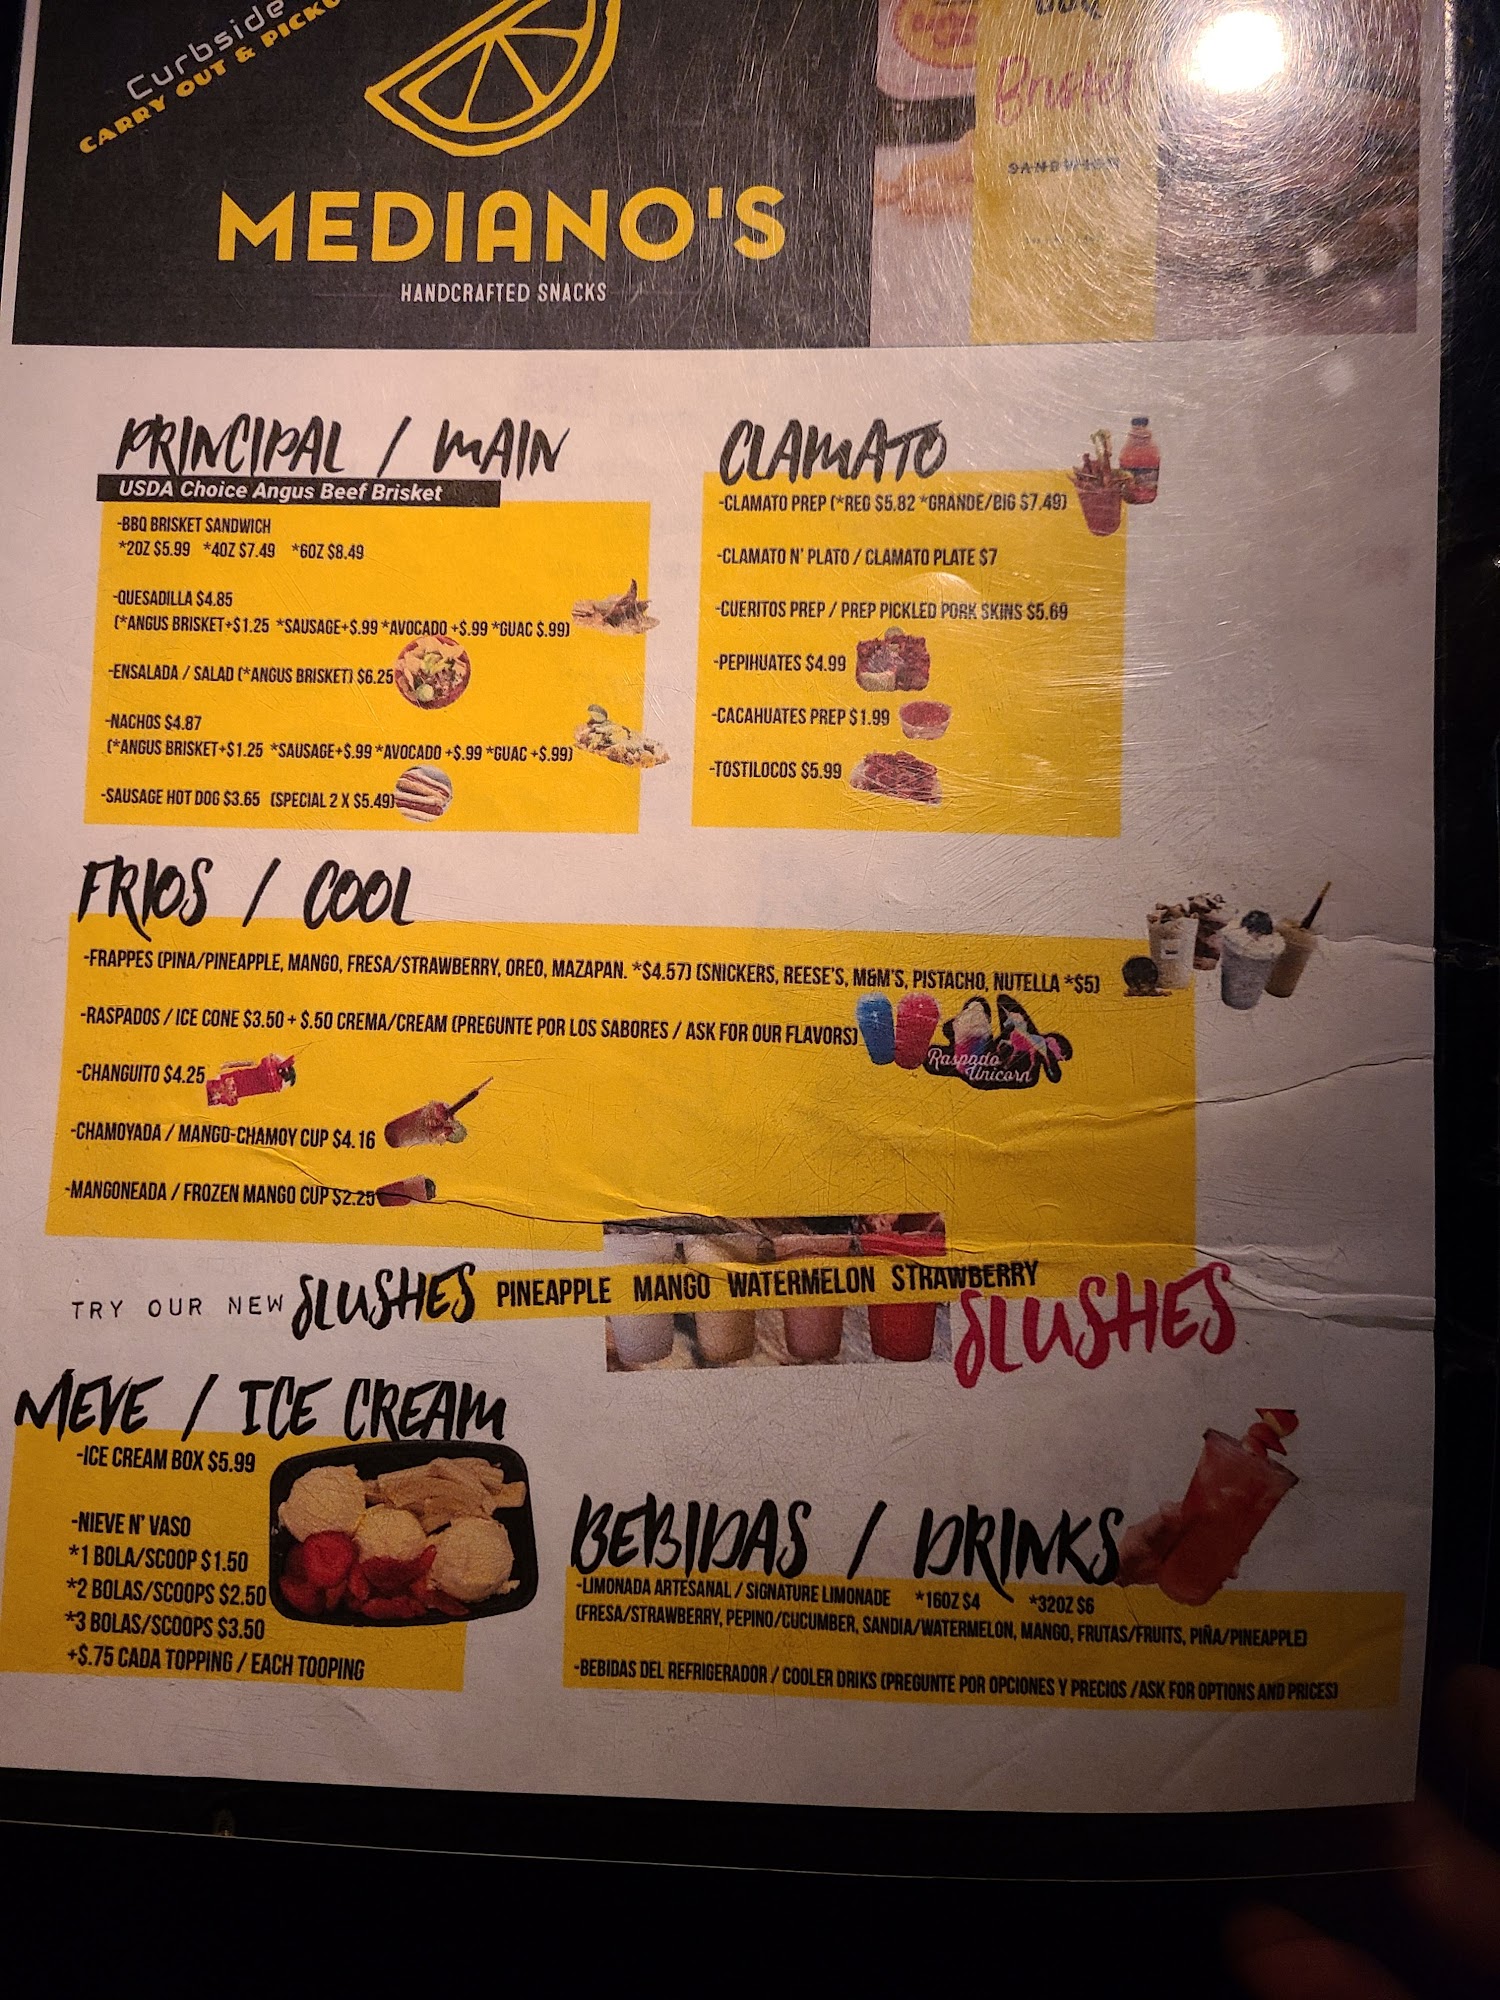 Curbside
CARRY OUT &
MEDIANO'S
HANDCRAFTED SNACKS
BBQ
Brisket
SANDWICH
PRINCIPAL / MAIN
USDA Choice Angus Beef Brisket
-BBQ BRISKET SANDWICH
*2OZ $5.99 *4OZ $7.49 *6OZ $8.49
-QUESADILLA $4.85
(*ANGUS BRISKET+$1.25 *SAUSAGE+$.99 *AVOCADO +$.99 *GUAC $.99)
-ENSALADA / SALAD (*ANGUS BRISKET) $6.25
-NACHOS $4.87
(*ANGUS BRISKET+$1.25 *SAUSAGE+$.99 *AVOCADO +$.99 *GUAC +$.99)
-SAUSAGE HOT DOG $3.65 (SPECIAL 2 X $5.49)
CLAMATO
-CLAMATO PREP (*REG $5.82 *GRANDE/BIG $7.49)
-CLAMATO N' PLATO / CLAMATO PLATE $7
-CUERITOS PREP / PREP PICKLED PORK SKINS $5.69
-PEPIHUATES $4.99
-CACAHUATES PREP $1.99
-TOSTILOCOS $5.99
FRIOS / COOL
-FRAPPES (PINA/PINEAPPLE, MANGO, FRESA/STRAWBERRY, OREO, MAZAPAN. *$4.57) (SNICKERS, REESE'S, M&M'S, PISTACHO, NUTELLA *$5)
-RASPADOS / ICE CONE $3.50 + $.50 CREMA/CREAM (PREGUNTE POR LOS SABORES / ASK FOR OUR FLAVORS)
Raspado
Unicorn
-CHANGUITO $4.25
-CHAMOYADA / MANGO-CHAMOY CUP $4.16
-MANGONEADA / FROZEN MANGO CUP $2.25
TRY OUR NEW SLUSHES PINEAPPLE MANGO WATERMELON STRAWBERRY
SLUSHES
NIEVE / ICE CREAM
-ICE CREAM BOX $5.99
-NIEVE N' VASO
*1 BOLA/SCOOP $1.50
*2 BOLAS/SCOOPS $2.50
*3 BOLAS/SCOOPS $3.50
+$.75 CADA TOPPING / EACH TOOPING
BEBIDAS / DRINKS
-LIMONADA ARTESANAL / SIGNATURE LIMONADE *16OZ $4 *32OZ $6
(FRESA/STRAWBERRY, PEPINO/CUCUMBER, SANDIA/WATERMELON, MANGO, FRUTAS/FRUITS, PIÑA/PINEAPPLE)
-BEBIDAS DEL REFRIGERADOR / COOLER DRIKS (PREGUNTE POR OPCIONES Y PRECIOS /ASK FOR OPTIONS AND PRICES)